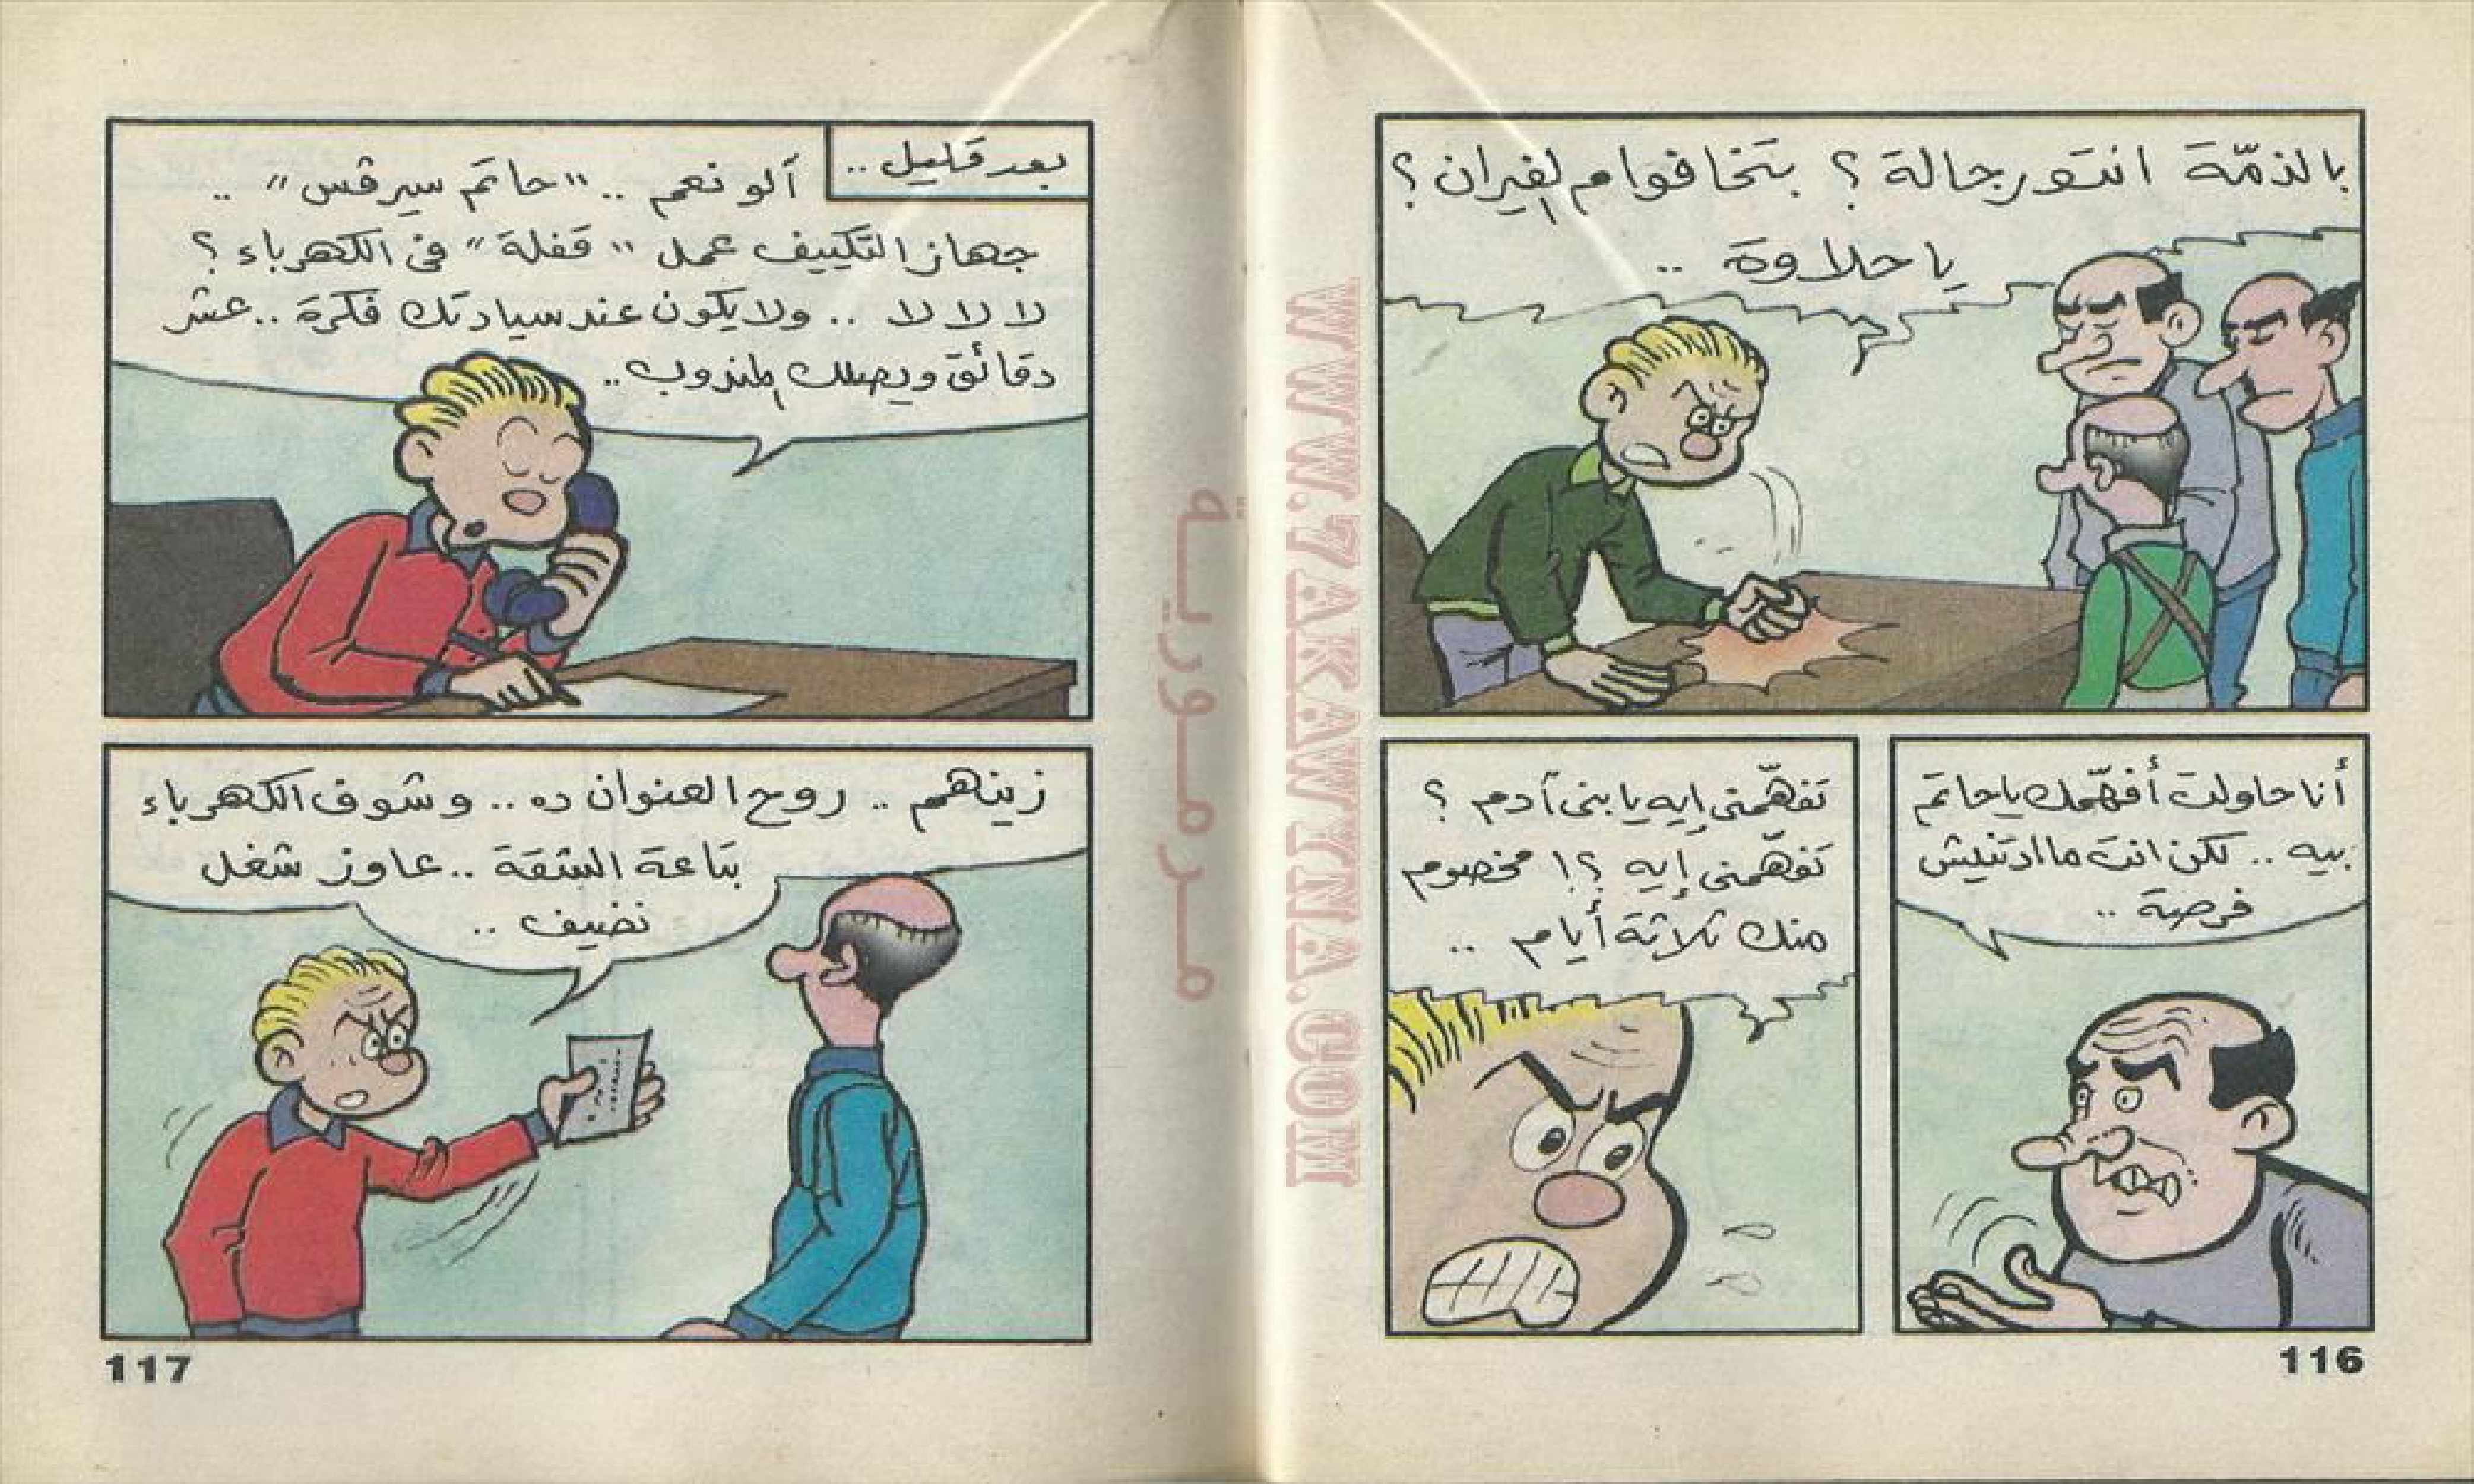 بالذمّة انتو رجالة ؟ بتخافوا م الفيران ؟
يا حلاوة ..
أنا حاولت أفهّمك يا حاتم
بيه .. لكن انت ما ادتنيش
فرصة ..
تفهّمنى إيه يا بنى آدم ؟
تفهّمنى إيه ؟! مخصوم
منك تلاتة أيام ..
116
WWW.7AKAWINA.COM
مرمورية
بعد قليل ..
آلو نعم .. "حاتم سيرفس" ..
جهاز التكييف عمل "قفلة" فى الكهرباء ؟
لا لا لا .. ولا يكون عند سيادتك فكرة .. عشر
دقائق ويصلك المندوب ..
زينهم .. روح العنوان ده .. وشوف الكهرباء
بتاعة الشقة .. عاوز شغل
نضيف ..
117